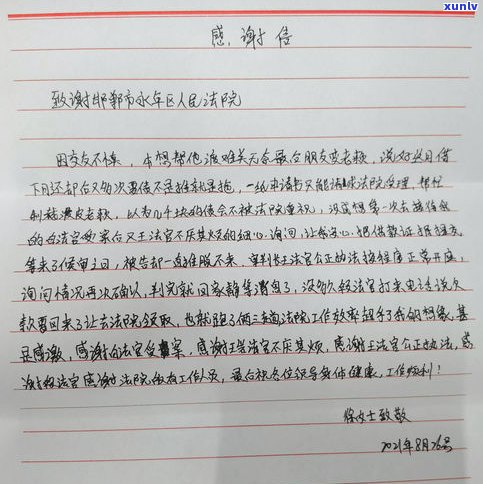 xunlv
感谢信
致谢邯郸市永年区人民法院
因交友不慎，本想帮他渡难关无奈最后朋友变老赖，说好当月借
下月还却后又多次要债不是推就是拖，一纸申请书只能请求法院受理，帮忙
制裁老赖，以为几千块的债会不被法院重视，没想第一次去接待我
的白法官受案后又王法官不厌其烦的细心询问，让我安心，把借款证据提交
等来了使审之日，被告却一推脱不来，审判长王法官公正的法按程序正常开庭，
询问情况再次确认，判完就回家静等消息了，没多久法官打来电话说欠
款要回来了让去法院领取，也就跑了俩三趟法院工作效率超乎了我的想象，甚
是感激，感谢白法官受案，感谢王法官不厌其烦，感谢王法官公正执法，感
谢法官感谢法院所有工作人员，最后祝各位领导身体健康，工作顺利！
女士致敬
2021年8月26号